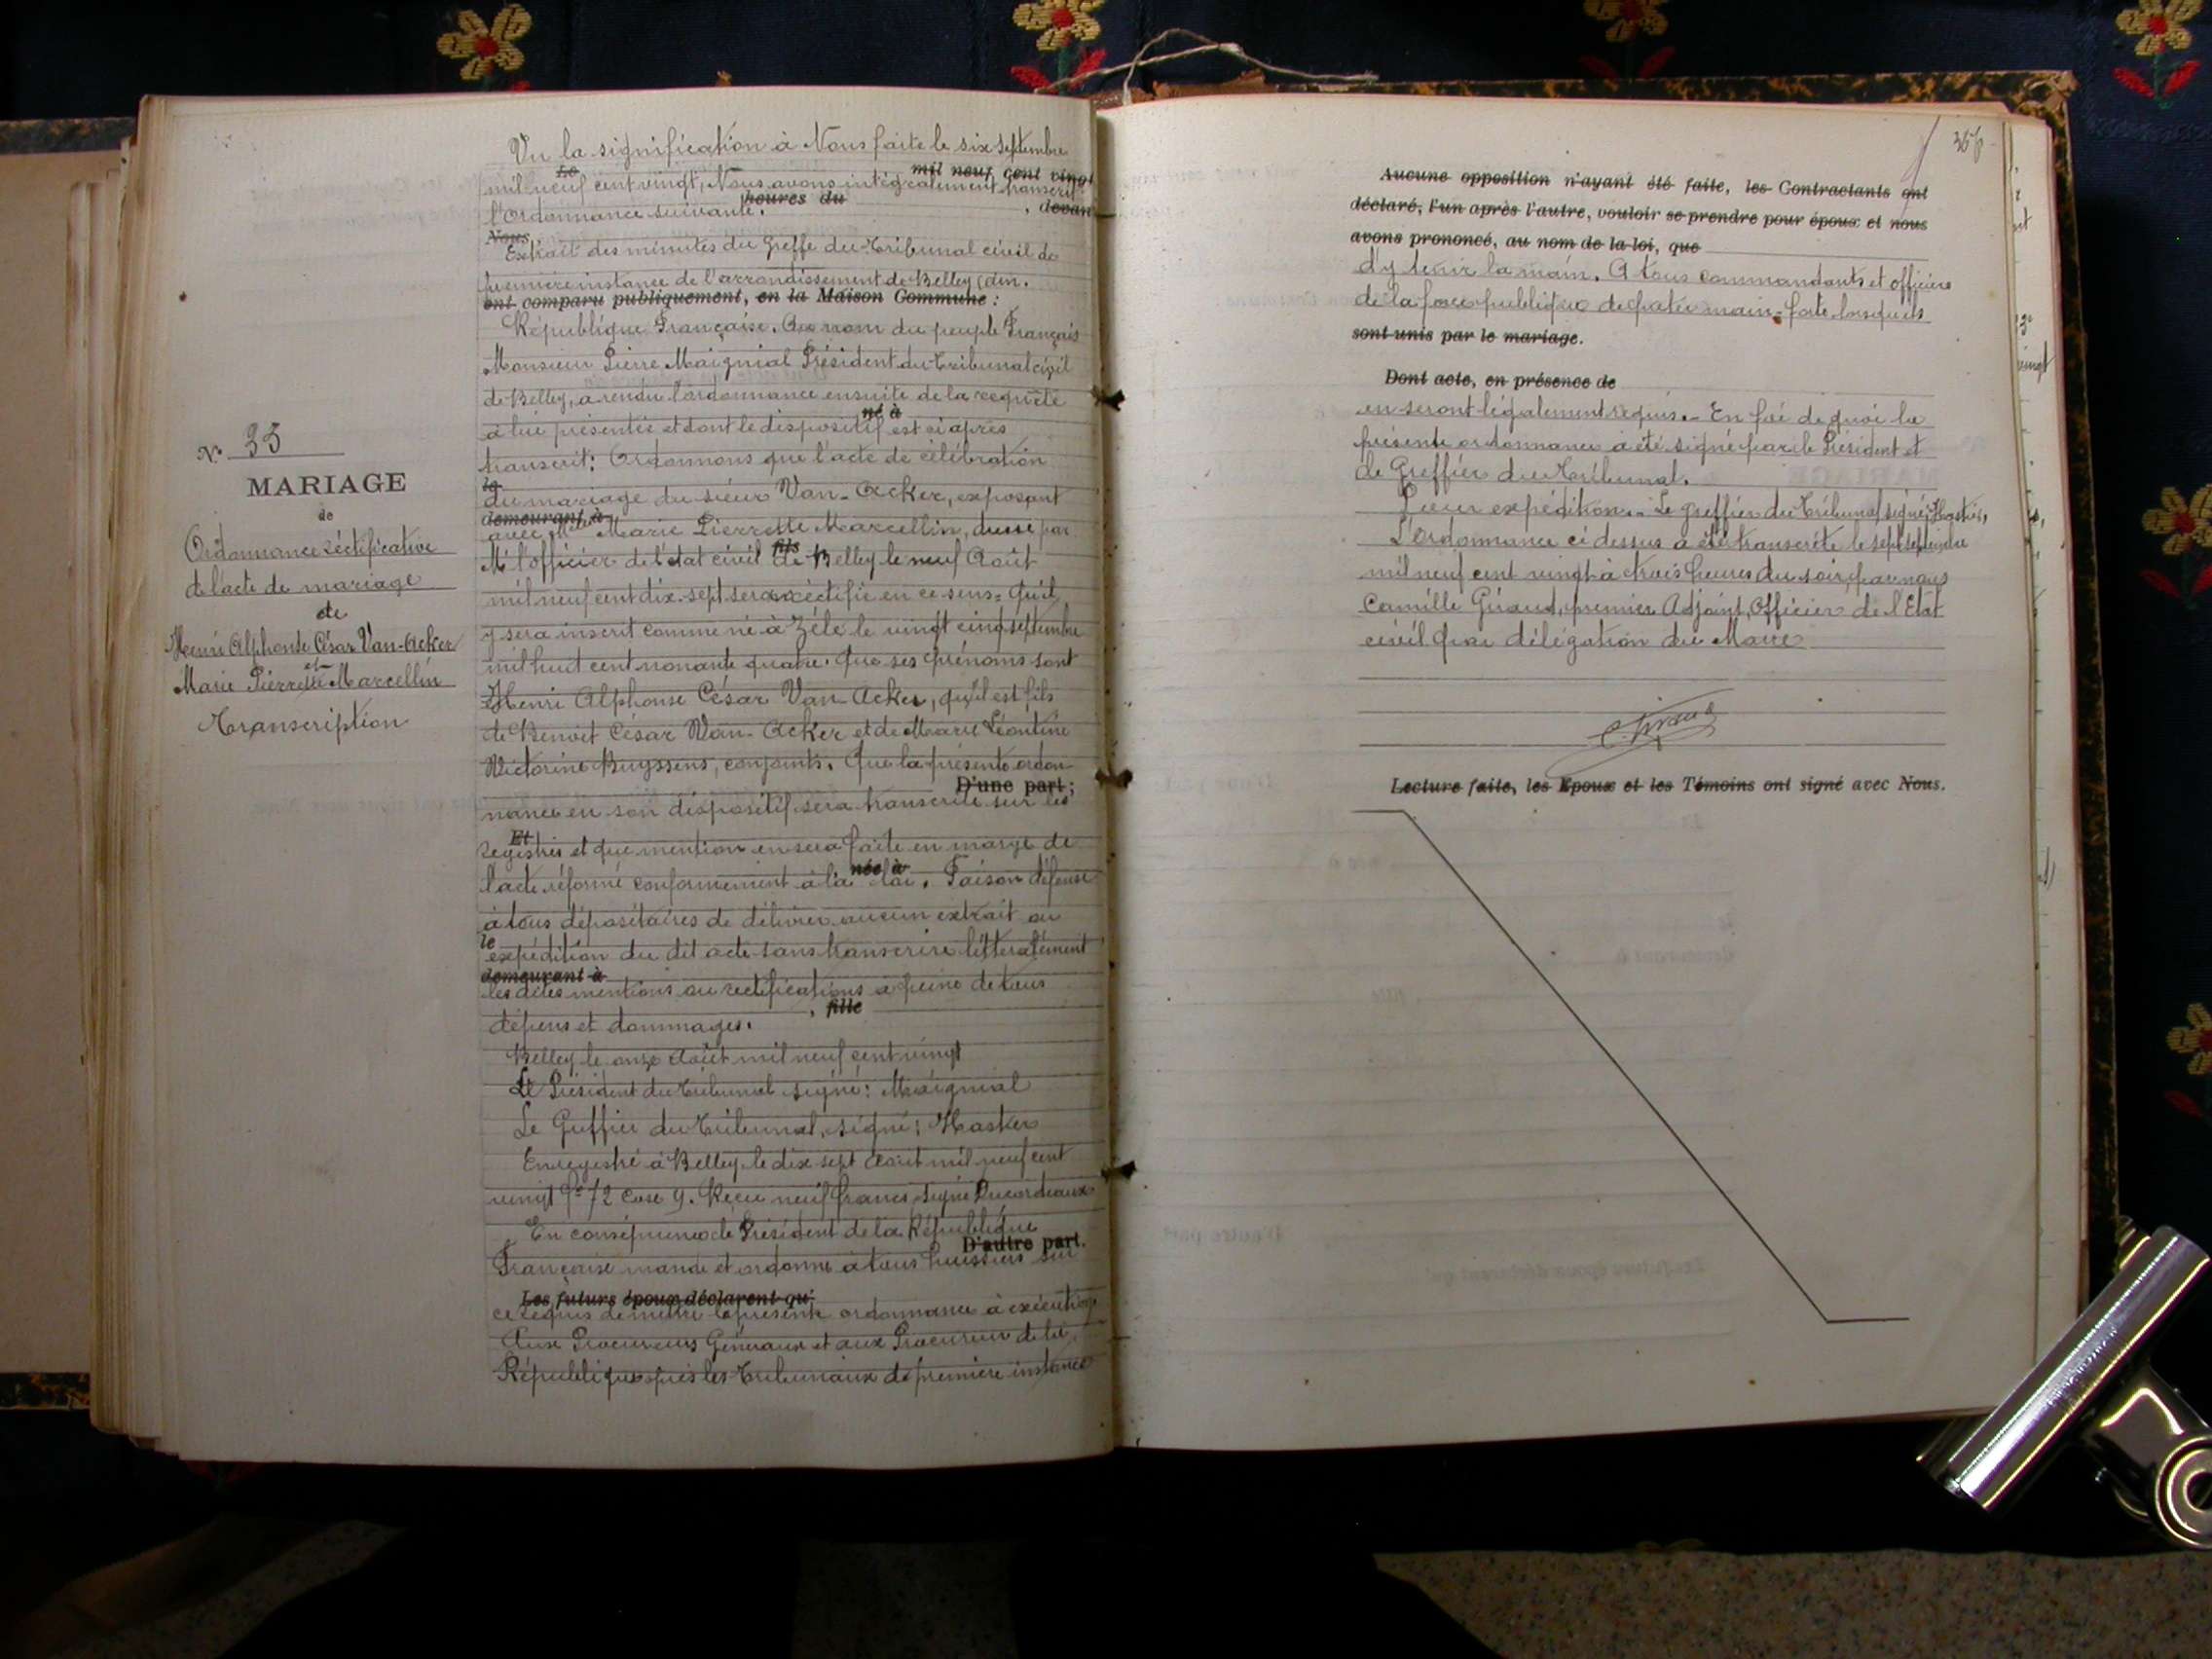 N° 33
MARIAGE
de
Ordonnance réctificative
de l'acte de mariage
de
Henri Alphonse César Van-Acker
et
Marie Pierrette Marcellin
Transcription
Vu la signification à Nous faite le six septembre
Le mil neuf cent vingt
mil neuf cent vingt, Nous avons intégralement transcrit
heures du , devan
l'Ordonnance suivante.
Nous
Extrait des minutes du Greffe du Tribunal civil de
première instance de l'arrondissement de Belley (Ain.
ont comparu publiquement, en la Maison Commune :
République Française. Au nom du peuple Français
Monsieur Pierre Maignial Président du Tribunal civil
de Belley, a rendu l'ordonnance ensuite de la requête
né à
à lui présentée et dont le dispositif est ci après
transcrit: Ordonnons que l'acte de célébration
le
du mariage du sieur Van-Acker, exposant
demeurant à
avec Melle Marie Pierrette Marcellin, dressé par
fils
M l'officier de l'état civil de Belley le neuf Août
mil neuf cent dix-sept sera réctifié en ce sens= Qu'il
y sera inscrit comme né à Zéle le vingt cinq septembre
mil huit cent nonante quatre. Que ses prénoms sont
Henri Alphonse César Van-Acker, qu'il est fils
de Benoit César Van-Acker et de Marie Léontine
Victorine Buyssens, conjoints. Que la présente ordon-
D'une part ;
nance en son dispositif sera transcrite sur les
Et
registres et que mention en sera faite en marge de
née à
l'acte réformé conformément à la loi. Faison défense
à tous dépositaires de délivrer aucun extrait ou
le
expédition du dit acte sans transcrire littéralement
demeurant à
les dites mentions ou rectifications à peine de tous
, fille
dépens et dommages.
Belley le onze Août mil neuf cent vingt
Le Président du Tribunal signé: Maignial
Le Greffier du Tribunal, signé: Hasker
Enregistré à Belley le dix sept Août mil neuf cent
vingt f° 72 case 9. Reçu neuf francs signé Ducordeaux
En conséquence le Président de la République
D'autre part.
Française mande et ordonne à tous huissiers sur
Les futurs époux déclarent qu'
ce requis de mettre la présente ordonnance à exécution
Aux Procureurs Généraux et aux Procureurs de la
République près les Tribunaux de première instance
Aucune opposition n'ayant été faite, les Contractants ont
déclaré, l'un après l'autre, vouloir se prendre pour époux et nous
avons prononcé, au nom de la loi, que
d'y tenir la main. A tous commandants et officiers
de la force publique de prêter main-forte lorsqu'ils
sont unis par le mariage.
Dont acte, en présence de
en seront légalement requis.- En foi de quoi la
présente ordonnance a été signé par le Président et
le Greffier du Tribunal.
Pour expédition.- Le greffier du Tribunal signé: Hasker,
L'Ordonnance ci dessus a été transcrite le sept septembre
mil neuf cent vingt à trois heures du soir, par nous
Camille Giraud, premier Adjoint, Officier de l'Etat
civil par délégation du Maire
C. Giraud
Lecture faite, les Epoux et les Témoins ont signé avec Nous.